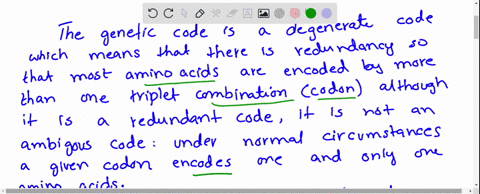 The genetic code is a degenerate code
which means that there is redundancy so
that most amino acids are encoded by more
than one triplet combination (codon) although
it is a redundant code, it is not an
ambigous code: under normal circumstances
a given codon encodes one and only one
amino acids.